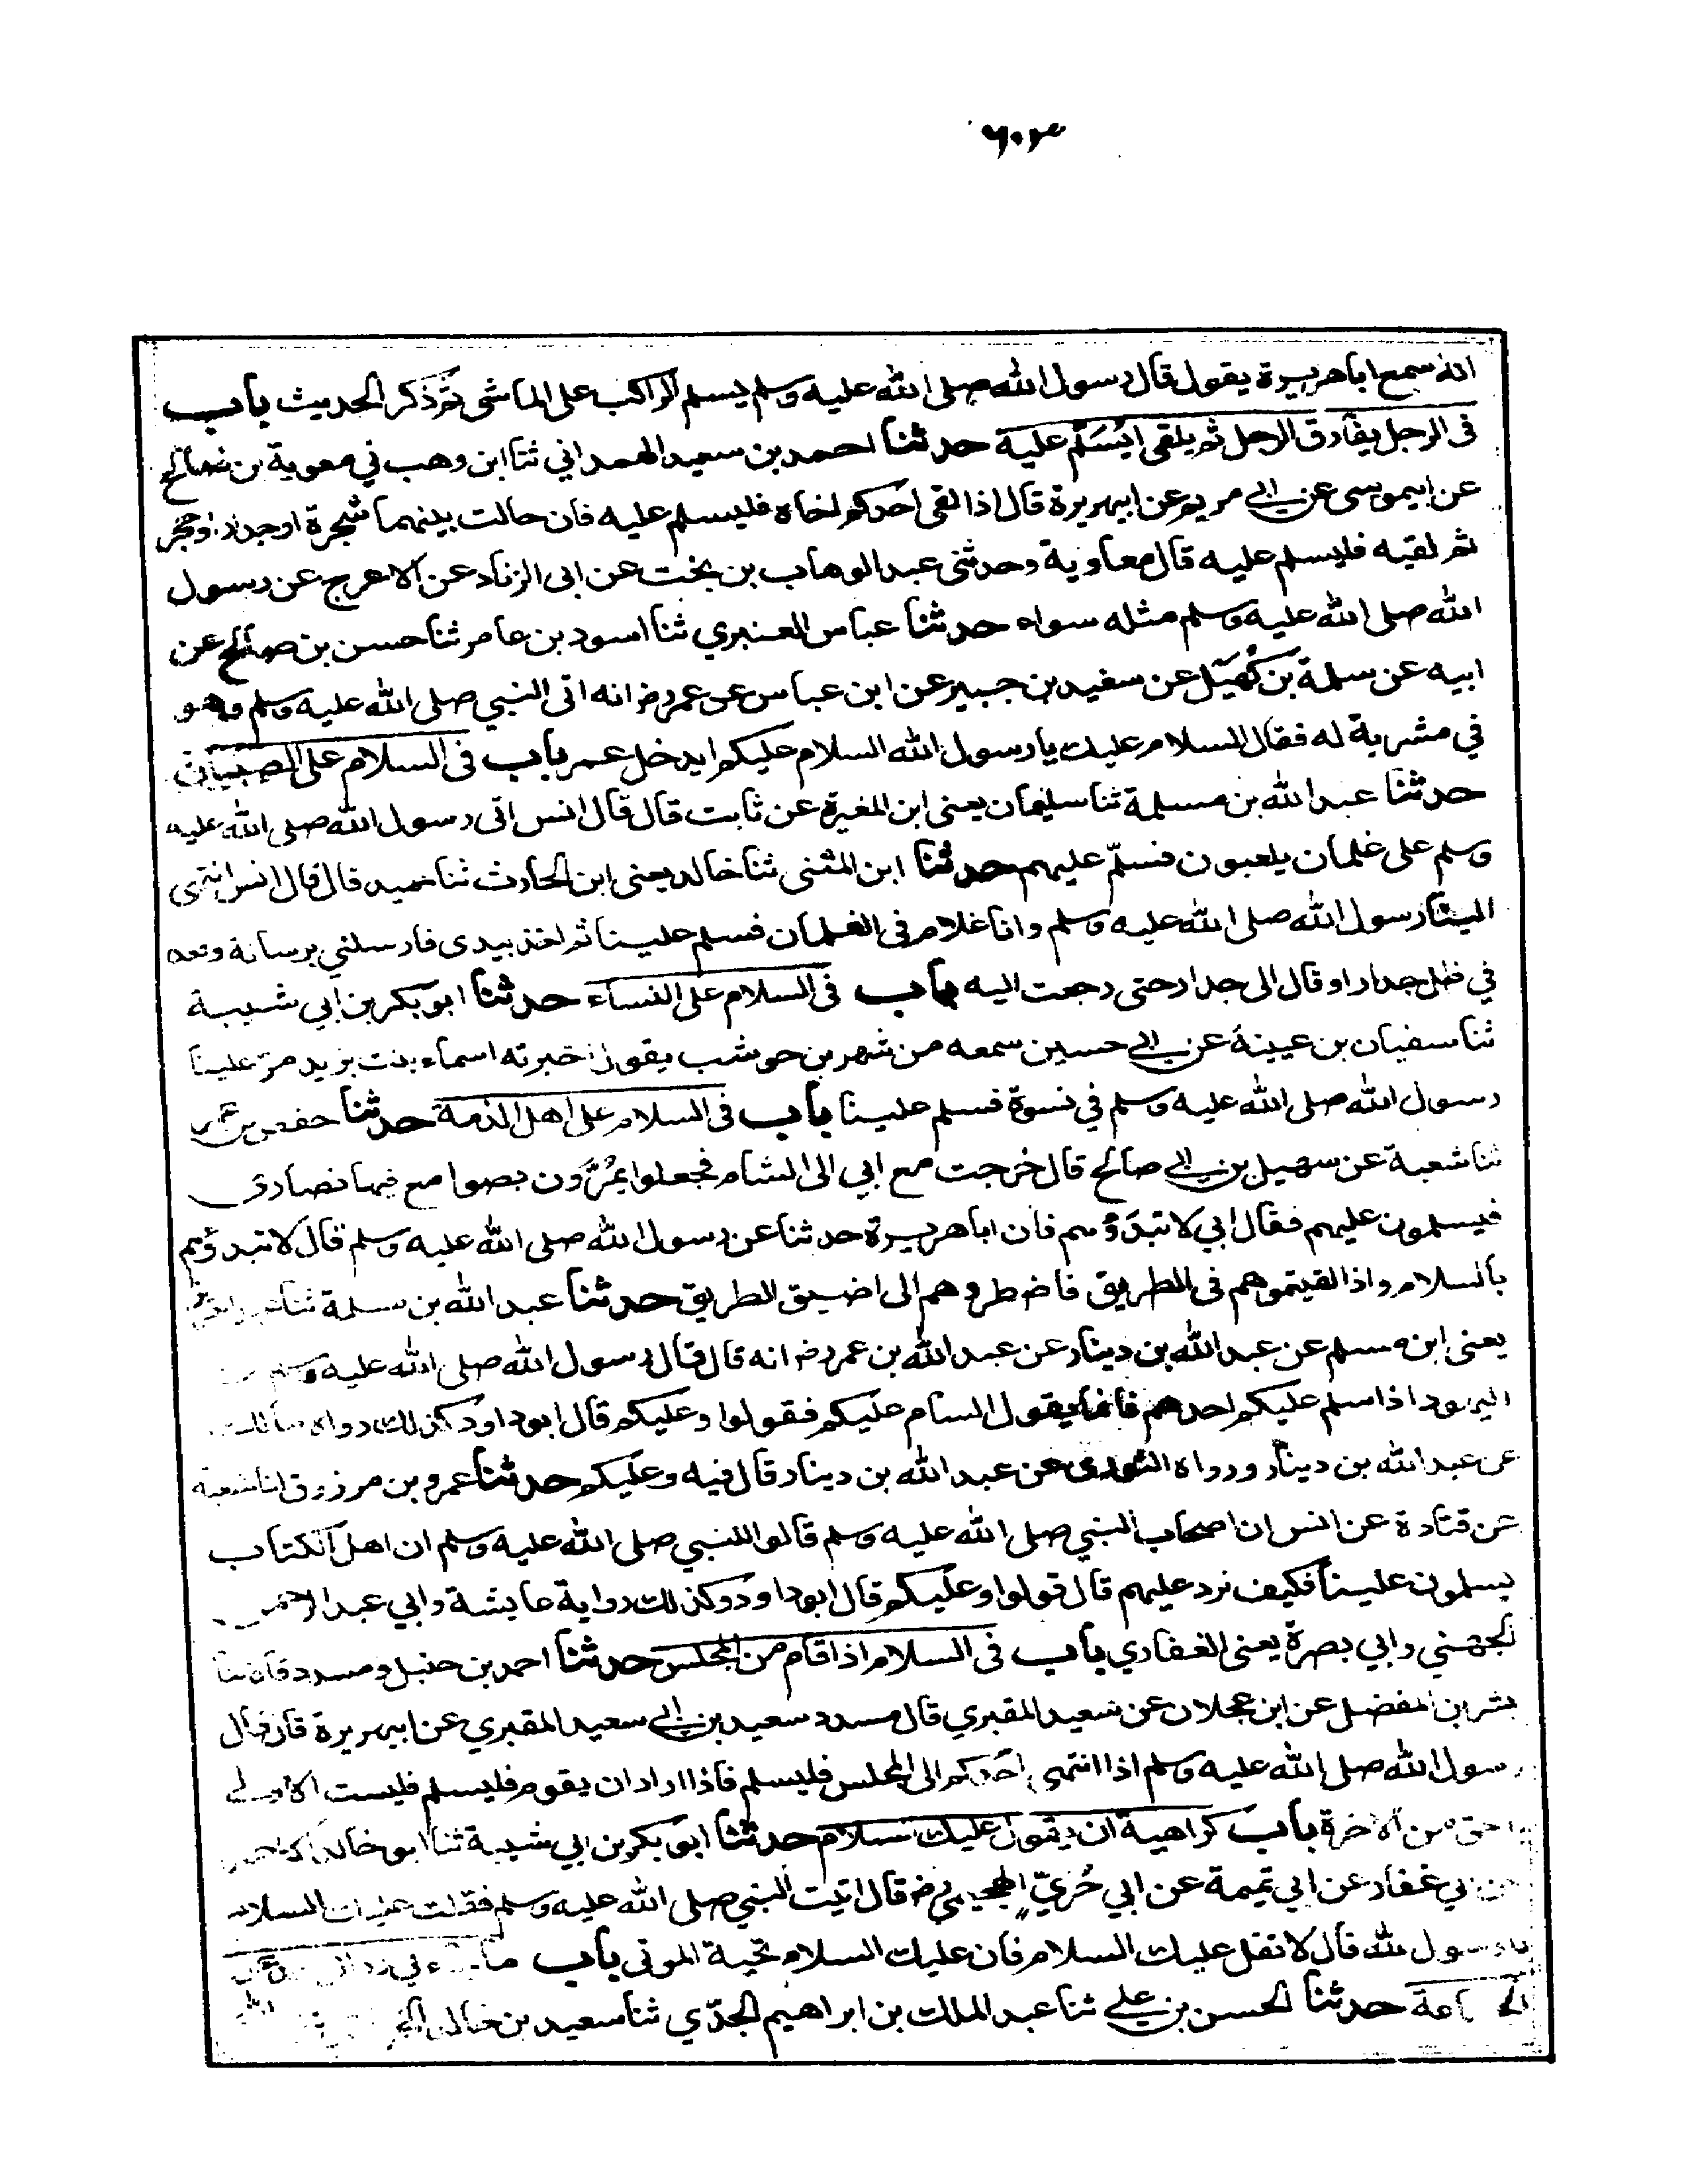 ٦٠٢٤
انه سمع اباهريرة يقول قال رسول الله صلى الله عليه وسلم يسلم الراكب على الماشى ثم ذكر الحديث باب
فى الرجل يفارق الرجل ثم يلقى ايُسَلّم عليه حدثنا احمد بن سعيد الهمداني ثنا ابن وهب في معوية بن صالح
عن ابيموسى عن ابي مريم عن ابيهريرة قال اذا لقى احدكم اخاه فليسلم عليه فان حالت بينهما شجرة او جدار او حجر
ثم لقيه فليسلم عليه قال معاوية وحدثنى عبد الوهاب بن بخت عن ابى الزناد عن الاعرج عن رسول
الله صلى الله عليه وسلم مثله سواء حدثنا عباس العنبري ثنا اسود بن عامر ثنا حسن بن صالح عن
ابيه عن سلمة بن كُهَيَل عن سعيد بن جبير عن ابن عباس عن عمر رض انه اتى النبي صلى الله عليه وسلم وهو
في مشربة له فقال السلام عليك يا رسول الله السلام عليكم ايدخل عمر باب فى السلام على الصبيان
حدثنا عبد الله بن مسلمة ثنا سليمان يعنى ابن المغيرة عن ثابت قال قال انس اتى رسول الله صلى الله عليه
وسلم على غلمان يلعبون فسلّم عليهم حدثنا ابن المثنى ثنا خالد يعنى ابن الحارث ثنا حميد قال قال انس انتهى
الينا رسول الله صلى الله عليه وسلم وانا غلام فى الغلمان فسلم علينا ثم اخذ بيدى فارسلني برسالة وقعد
في ظل جدار او قال الى جدار حتى رجعت اليه باب فى السلام على النساء حدثنا ابو بكر بن ابي شيبة
ثنا سفيان بن عيينة عن ابي حسين سمعه من شهر بن حوشب يقول اخبرته اسماء بنت يزيد مرّ علينا
رسول الله صلى الله عليه وسلم في نسوة فسلم علينا باب فى السلام على اهل الذمة حدثنا حفص بن عمر
ثنا شعبة عن سهيل بن ابي صالح قال خرجت مع ابي الى الشام فجعلوا يمُرّون بصوامع فيها نصارى
فيسلمون عليهم فقال ابي لا تبدَؤُهم فان اباهريرة حدثنا عن رسول الله صلى الله عليه وسلم قال لا تبدؤهم
بالسلام واذا لقيتموهم فى الطريق فاضطروهم الى اضيق الطريق حدثنا عبد الله بن سلمة ثنا
يعنى ابن مسلم عن عبد الله بن دينار عن عبد الله بن عمر رض انه قال قال رسول الله صلى الله عليه وسلم
اليهود اذا سلم عليكم احدهم فانما يقول السام عليكم فقولوا وعليكم قال ابو داود كذلك رواه مالك
عن عبد الله بن دينار ورواه الثورى عن عبد الله بن دينار قال فيه وعليكم حدثنا عمرو بن مرزوق انا شعبة
عن قتادة عن انس ان اصحاب النبي صلى الله عليه وسلم قالوا للنبي صلى الله عليه وسلم ان اهل الكتاب
يسلمون علينا فكيف نرد عليهم قال قولوا وعليكم قال ابو داود وكذلك رواية عايشة وابي عبد الرحمن
الجهني وابي بصرة يعنى الغفاري باب فى السلام اذا قام من المجلس حدثنا احمد بن حنبل ومسدد قالا ثنا
بشر بن المفضل عن ابن عجلان عن سعيد المقبري قال مسدد سعيد بن ابي سعيد المقبري عن ابيهريرة قال قال
رسول الله صلى الله عليه وسلم اذا انتهى احدكم الى المجلس فليسلم فاذا اراد ان يقوم فليسلم فليست الاولى
باحق من الآخرة باب كراهية ان يقول عليك السلام حدثنا ابو بكر بن ابي شيبة ثنا ابو خالد الاحمر
عن ابي غفار عن ابي تميمة عن ابي حُريّ الهجيمي رض قال اتيت النبي صلى الله عليه وسلم فقلت عليك السلام
يا رسول الله قال لا تقل عليك السلام فان عليك السلام تحية الموتى باب
الجماعة حدثنا الحسن بن علي ثنا عبد الملك بن ابراهيم الجدّي ثنا سعيد بن خالد